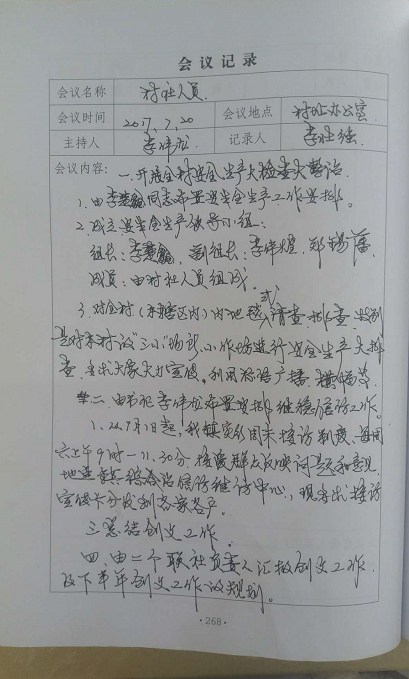 会议记录
会议名称 村社人员
会议时间 2017.7.20 会议地点 村社办公室
主持人 李 记录人 李
会议内容： 一.开展全村安全生产大检查大整治。
1.由李同志布置安全生产工作安排。
2.成立安全生产领导小组：
组长：李 副组长：李 郑
成员：由村社人员组成。
3.对全村（辖区内）内地毯式清查排查，特别
是对本村设"三小"场所、小作坊进行安全生产大排
查，大宣传，利用标语广播、横幅等。
二.由书记李布置安排继续信访工作。
1.从7月1日起，我镇实行周末接访制度，每周
六上午9时一11.30分，接受群众反映问题和意见，
地点：信访接访中心，现发出接访
宣传卡分发到各家各户。
三.总结创文工作。
四.由二个联社负责人汇报创文工作，
及下半年创文工作的规划。
·268·